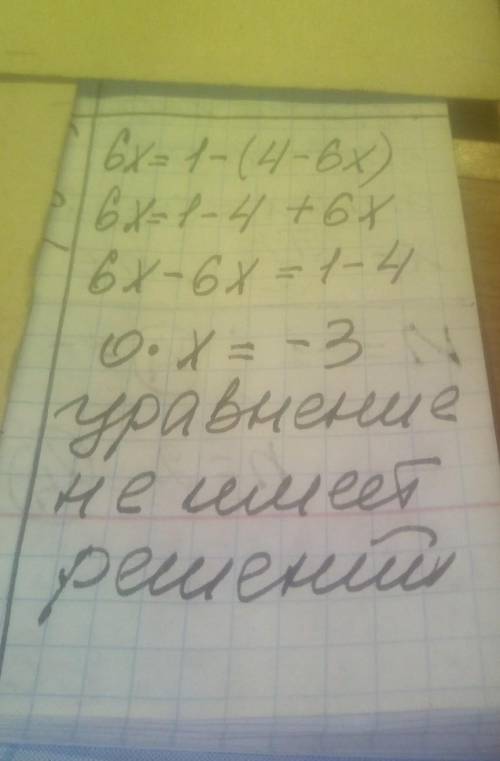 6x=1-(4-6x)
6x=1-4+6x
6x-6x=1-4
0·x=-3
уравнение
не имеет
решений